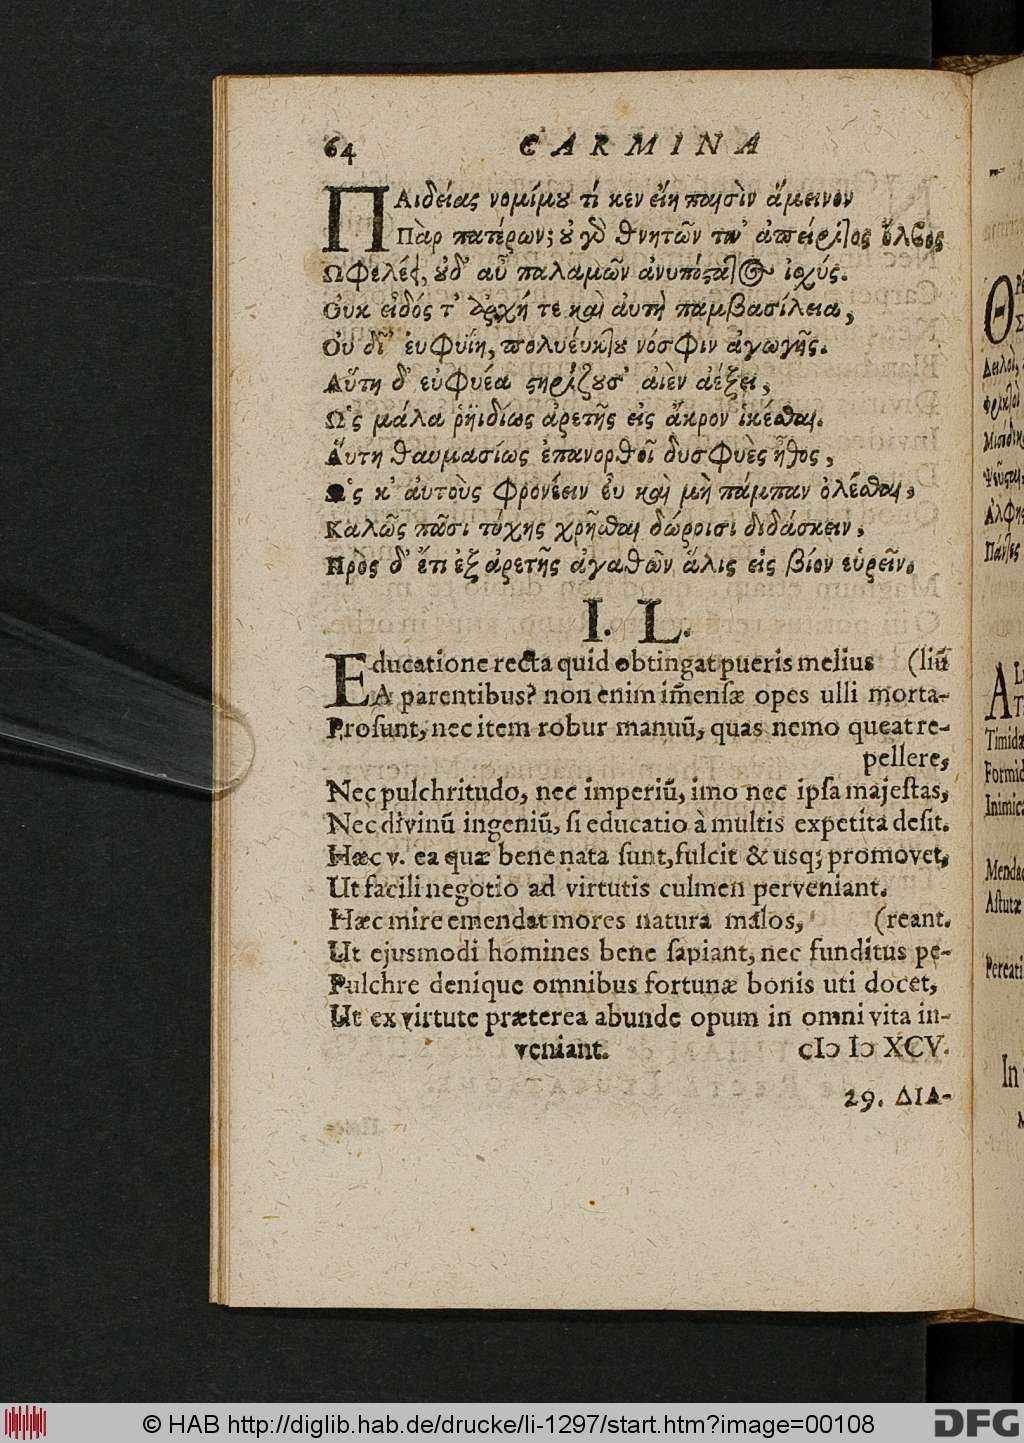 64 CARMINA
ΠΑιδείας νομίμου τί κεν εἴη παισὶν ἄμεινον
Πὰρ πατέρων; οὐ γὸ θνητῶν τιν' ἀπείριτος ὄλβος
Ωφελέει, οὐδ' αὖ παλαμῶν ἀνυπόςατος ἰχύς.
Οὐκ εἰδός τ' ἀρχή τε καὶ ἀυτὴ παμβασίλεια,
Οὐ δῖ' ἐυφυΐη, πολυέυκτου νόσφιν ἀγωγῆς.
Αὕτη δ' εὐφυέα ςηρίζουσ' ἀιὲν ἀέξει,
Ως μάλα ῥηϊδίως ἀρετῆς εἰς ἄκρον ἱκέσθαι.
Αὕτη θαυμασίως ἐπανορθοῖ δυσφυὲς ἦθος,
Ως κ' ἀυτοὺς φρονέειν ἐυ καὶ μὴ πάμπαν ὀλέσθαι,
Καλῶς πᾶσι τύχης χρῆσθαι δώροισι διδάσκειν,
Πρὸς δ' ἔτι ἐξ ἀρετῆς ἀγαθῶν ἅλις εἰς βίον εὑρεῖν.
I. L.
Educatione recta quid obtingat pueris melius (liū
A parentibus? non enim im̄ensæ opes ulli morta-
Prosunt, nec item robur manuū, quas nemo queat re-
pellere,
Nec pulchritudo, nec imperiū, imo nec ipsa majestas,
Nec divinū ingeniū, si educatio à multis expetita desit.
Hæc v. ea quæ bene nata sunt, fulcit & usq; promovet,
Ut facili negotio ad virtutis culmen perveniant.
Hæc mire emendat mores natura malos, (reant.
Ut ejusmodi homines bene sapiant, nec funditus pe-
Pulchre denique omnibus fortunæ bonis uti docet,
Ut ex virtute præterea abunde opum in omni vita in-
veniant. cIɔ Iɔ XCV.
29. ΔΙΑ-
© HAB http://diglib.hab.de/drucke/li-1297/start.htm?image=00108
DFG